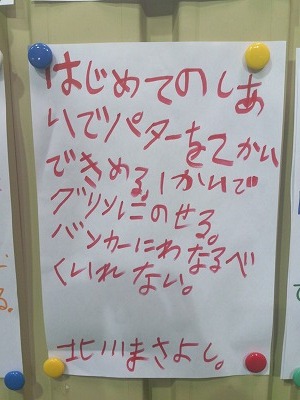 はじめてのしあ
いでパターを2かい
できめる。1かいで
グリンにのせる。
バンカーにわなるべ
くいれない。
北川まさよし。